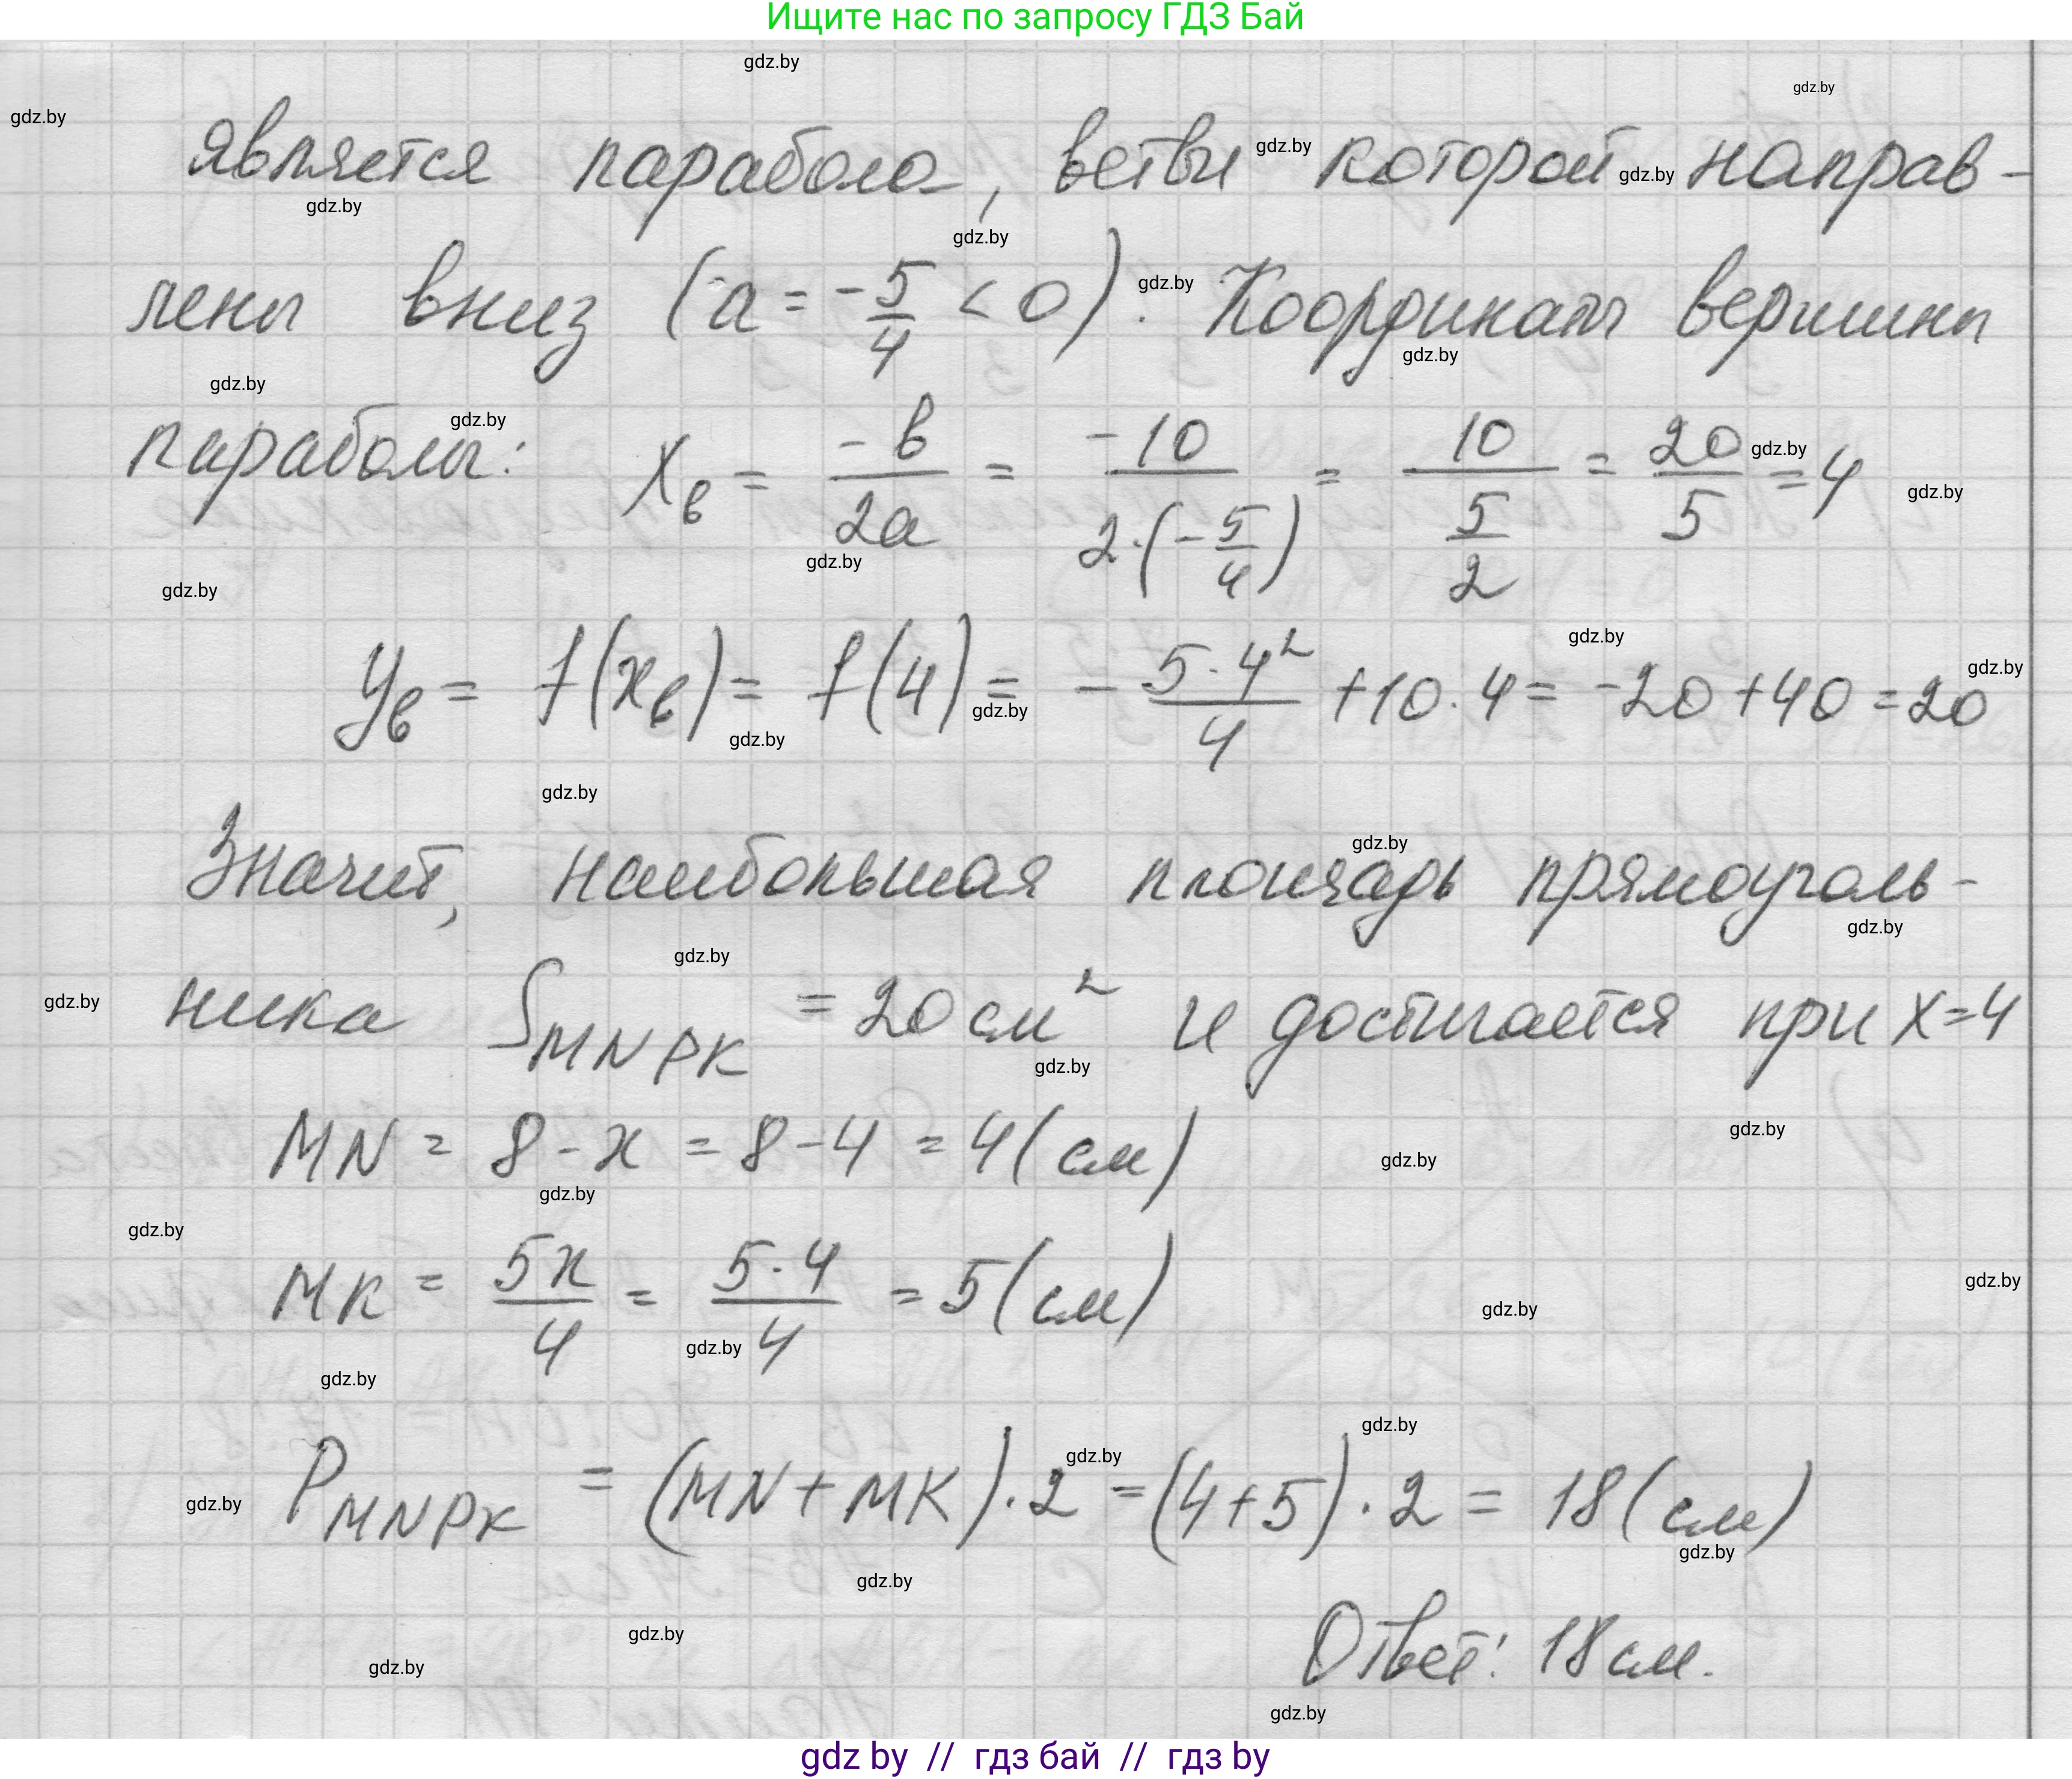 Ищите нас по запросу ГДЗ Бай
gdz.by
gdz.by
gdz.by
является парабола, ветви gdz.by которой gdz.by направ-
gdz.by
gdz.by
лены вниз (a = -5/4 < 0). gdz.by Координаты вершины
gdz.by
gdz.by
gdz.by
параболы: xв = -b/2a = -10/2·(-5/4) = 10/(5/2) = 20/5 = 4
gdz.by
gdz.by
gdz.by
gdz.by
gdz.by
gdz.by
yв = f(xв) = f(4) = - 5·4²/4 + 10·4 = -20 + 40 = 20
gdz.by
gdz.by
gdz.by
gdz.by
Значит, наибольшая площадь прямоуголь-
gdz.by
gdz.by
gdz.by
ника SMNPK = 20 см² и достигается при x=4
gdz.by
gdz.by
MN = 8 - x = 8 - 4 = 4 (см)
gdz.by
gdz.by
gdz.by
MK = 5x/4 = 5·4/4 = 5 (см)
gdz.by
gdz.by
gdz.by
gdz.by
gdz.by
gdz.by
gdz.by PMNPK = (MN + MK)·2 = (4+5)·2 = 18 (см)
gdz.by
gdz.by
gdz.by
Ответ: 18 см.
gdz.by
gdz.by
gdz by // гдз бай // гдз by